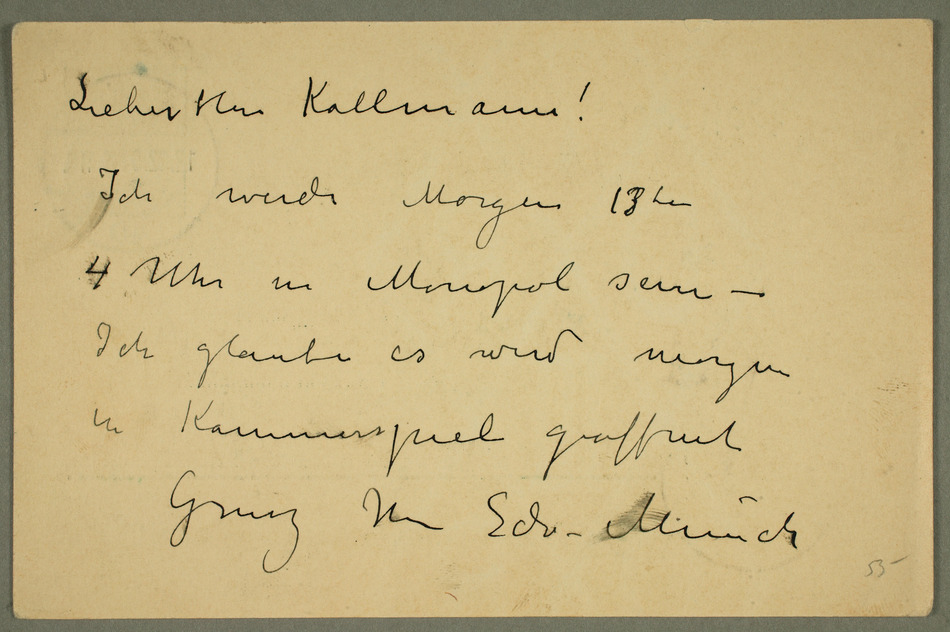 Lieber Herr Kollmann!
Ich werde Morgen 13ten
4 Uhr in Monopol sein —
Ich glaube es wird morgen
in Kammerspiel geöffnet
Grusz Ihr Edv. Munch
55